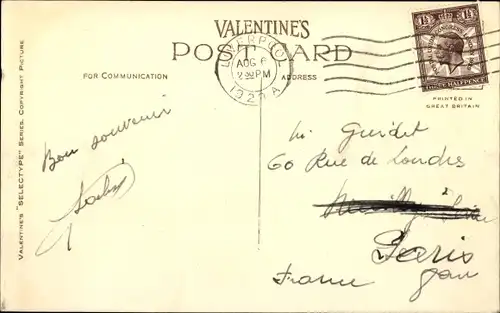 VALENTINE'S
POST CARD
FOR COMMUNICATION
ADDRESS
LIVERPOOL
AUG 6
1929
THREE HALFPENCE
PRINTED IN
GREAT BRITAIN
VALENTINE'S "SELECTYPE" SERIES. COPYRIGHT PICTURE
Bon souvenir
60 Rue de Londres
Paris
France